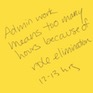 Admin work
means too many
hours because of
role elimination
12-13 hrs